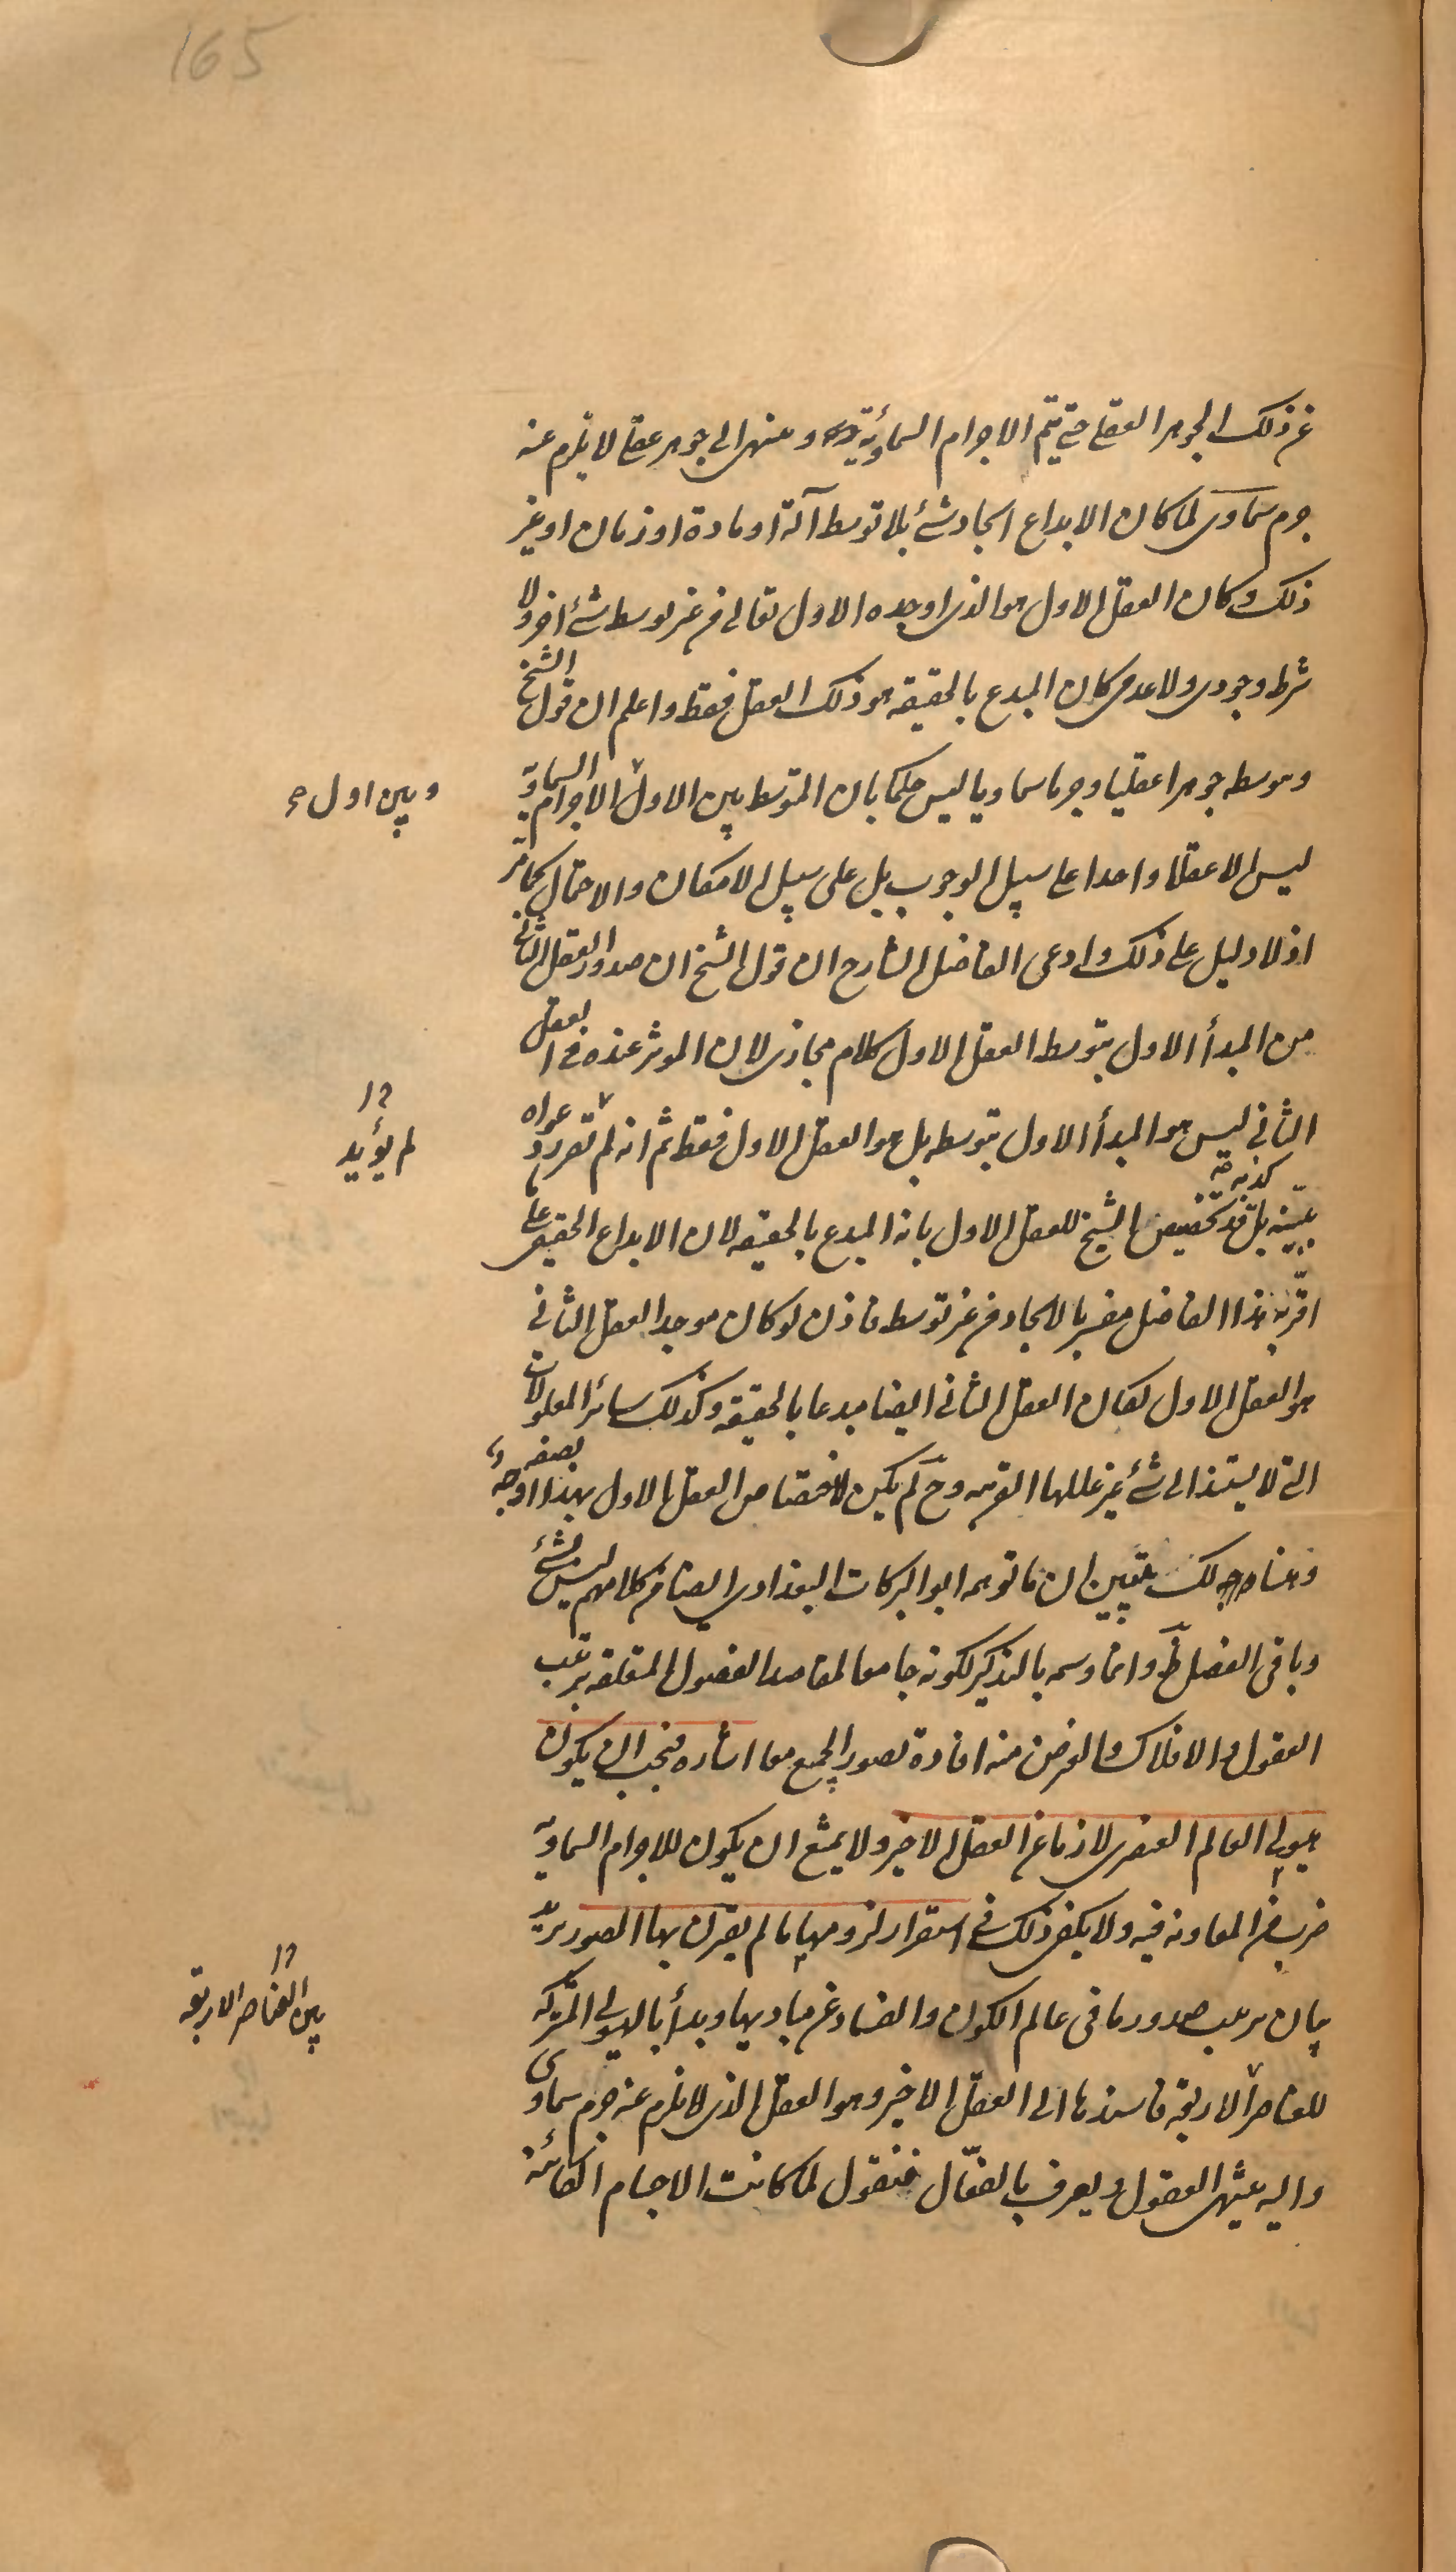 165
عن ذلك الجوهر العقلي حتى يتم الاجرام السماوية وينتهي الى جوهر عقلي لا يلزم عنه
جرم سماوي لما كان الابداع ايجاد شئ بلا توسط آلة او مادة او زمان او غير
ذلك وكان العقل الاول هو الذي اوجده الاول تعالى من غير توسط شئ اخر ولا
شرط وجودي ولا عدمي كان المبدع بالحقيقه هو ذلك العقل فقط واعلم ان قول الشيخ
وبتوسطه جوهرا عقليا وجرما سماويا ليس حكما بان المتوسط بين الاول الاجرام السماوية
وبين اول
ليس الا عقلا واحدا على سبيل الوجوب بل على سبيل الامكان والاحتمال كما مر
اذ لا دليل على ذلك وادعى الفاضل الشارح ان قول الشيخ ان صدور العقل الثاني
من المبدأ الاول بتوسط العقل الاول كلام مجازي لان الموثر عنده في العقل
الثاني ليس هو المبدأ الاول بتوسطه بل هو العقل الاول فقط ثم انه لم دعواه
لم يؤيد
ببينه بل كذبه تخصيص الشيخ للعقل الاول بانه المبدع بالحقيقه لان الابداع الحقيقي على
اقر به هذا الفاضل مفسر بالايجاد من غير توسط فاذن لو كان موجد العقل الثاني
هو العقل الاول لكان العقل الثاني ايضا مبدعا بالحقيقه وكذلك سائر المعلولات
التي لا يستند الى شئ غير عللها القريبه وح لم يكن لاختصاص العقل الاول بهذا الوجه
بصفه
وهناك يتبين ان ما توهمه ابو البركات البغدادي ايضا من كلامهم ليس بشئ
وباقي الفصل ظ وانما وسمه بالتذكير لكونه جامعا لمقاصد الفصول المتعلقه بترتيب
العقول والافلاك والغرض منه افادة تصور الجميع معا اشاره فيجب ان يكون
هيولى العالم العنصري لازما عن العقل الاخير ولا يمتنع ان يكون للاجرام السماوية
ضرب من المعاونه فيه ولا يكفي ذلك في استقرار لزومها ما لم يقترن بها الصور يريد
بيان ترتيب صدور ما في عالم الكون والفساد عن مباديها وبدأ بالهيولى المشتركه
بين العناصر الاربعه
للعناصر الاربعة فاسندها الى العقل الاخير وهو العقل الذي لا يلزم عنه جرم سماوي
واليه ينتهي العقول ويعرف بالفعّال فنقول لما كانت الاجسام الكائنة